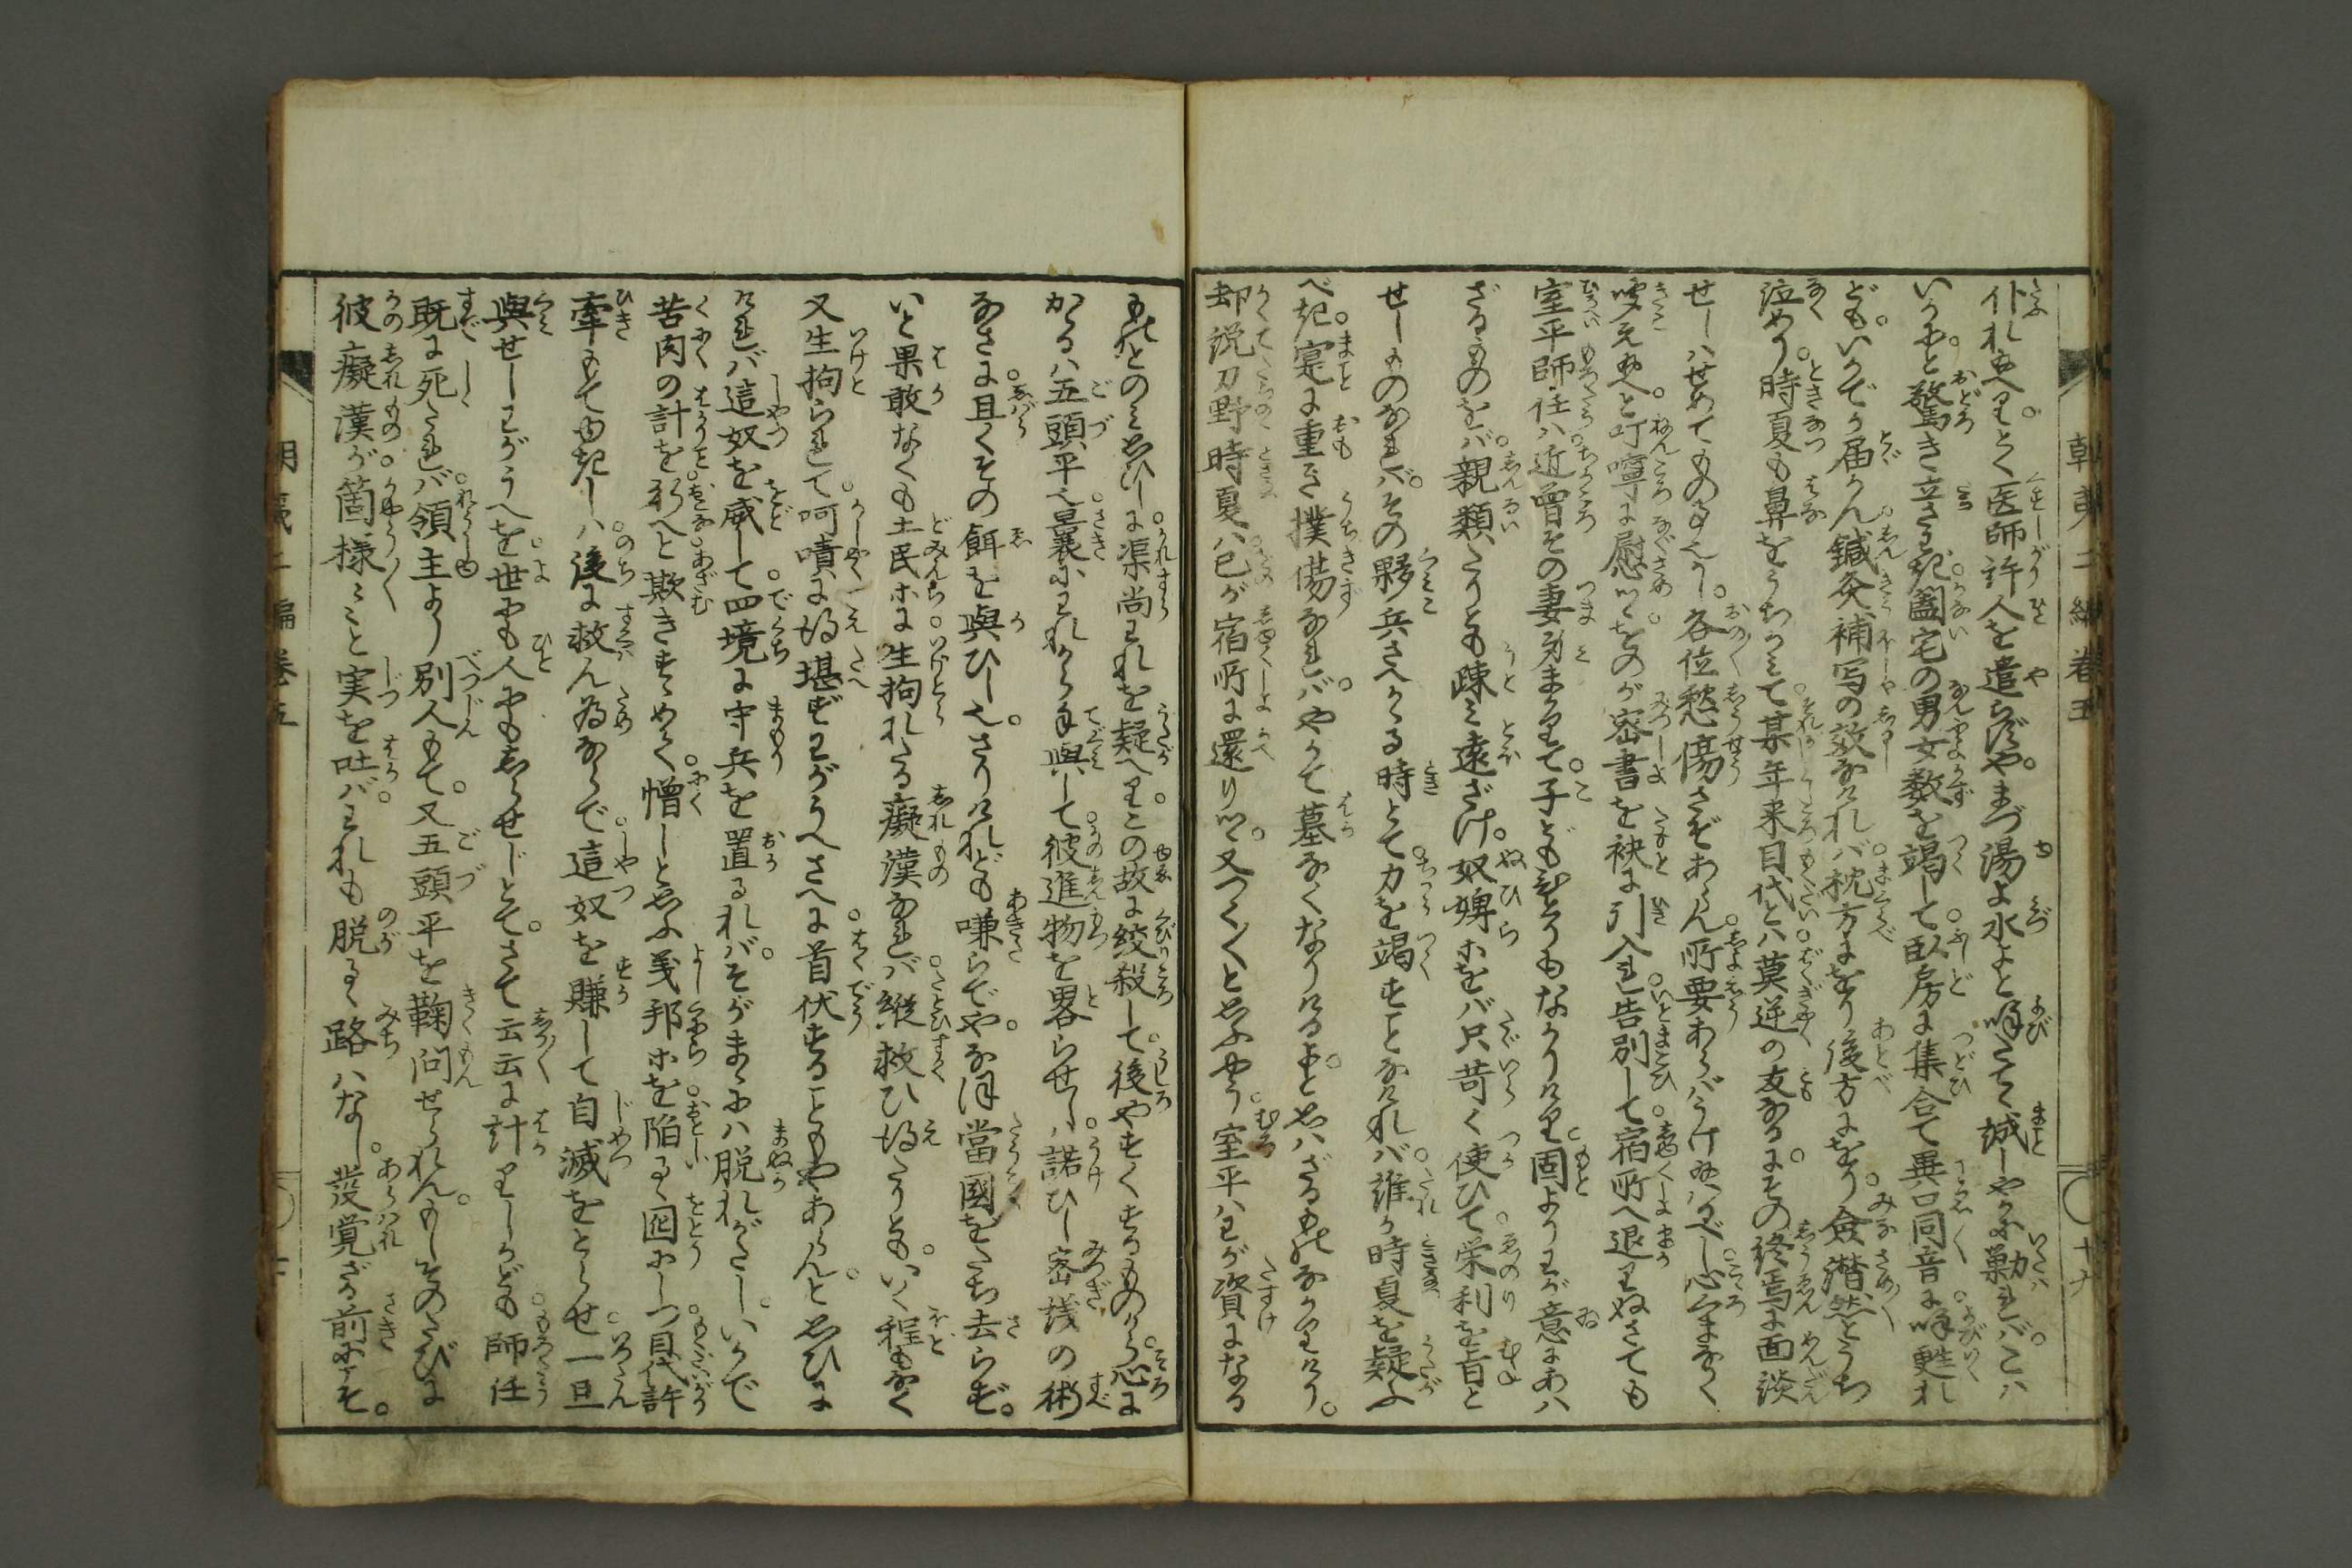 朝夷二編巻五
仆れ給へり。とく医師許人を遣らずや。まづ湯よ水よと呼たて、誠しやかに勦れば。こは
いかにと驚き立さわぎ。闔宅の男女数を竭して。臥房に集合て異口同音に。呼甦れ
ども。いかでか届かん。鍼灸補写の效なければ。枕方にをり後方にをり。僉潸然とうち
泣めり。時夏も鼻をうちかみて。某年来目代とは。莫逆の友なるに。その終焉に面談
せしはせめてもの事也かし。各位愁傷さぞあらん。所要あらばうけ給はるべし。心くまなく
聞え給へと。叮嚀に慰めつ。をのが密書を袂に引入れ。告別して宿所へ退りぬ。さても
室平師任は。近曾その妻身まかりて。子どもひとりもなかりけり。固よりわが意にあは
ざるものをば。親類たりとも疎み遠ざけ。奴婢等をば只苛く使ひて。栄利を旨と
せしものなれば。その夥兵さへかゝる時とて。力を竭すことなければ。誰か時夏を疑ふ
べき。寔に重き撲傷なれば。やがて墓なくなりけるよ。と思はざるものなかりけり。
却説刀野時夏は。己が宿所に還りつゝ。又つく〳〵と思ふやう。室平はわが資になる
ものとのみ思ひしに。渠尚われを疑へり。この故に絞殺して。後やすくするものから。心に
かゝるは五頭平也。曩にわれから手與して。彼進物を畧らせしは。諾ひし密議の術
なさに。且くその餌を與ひし也。さりけれども嗛らでや。なほ當國をたち去らず。
いと果敢なくも土民等に。生拘れたる癡漢なれば。縦救ひ得たりとも。いく程もなく
又生拘られて。呵嘖に得堪ずわがうへさへに。首伏することもやあらん。と思ひに
ければ這奴を威して。四境に守兵を置るれば。そがまゝには脱れがたし。いかで
苦肉の計を。行へと欺きすゝめて。憎しと思ふ義邦等を。陥るゝ囮にしつ。目代許
牽もて由きしは。後に救ん為ならで。這奴を賺して自滅をとらせ。一旦
與せしわがうへを。世にも人にもしらせじとて。さて云云に計りしかども。師任
既に死したれば。領主より別人もて。又五頭平を鞠問せられん。もしそのたびに
彼癡漢が。箇様々々と実を吐ば。われも脱るゝ路はなし。發覚ざる前にこそ。
朝夷二編巻五